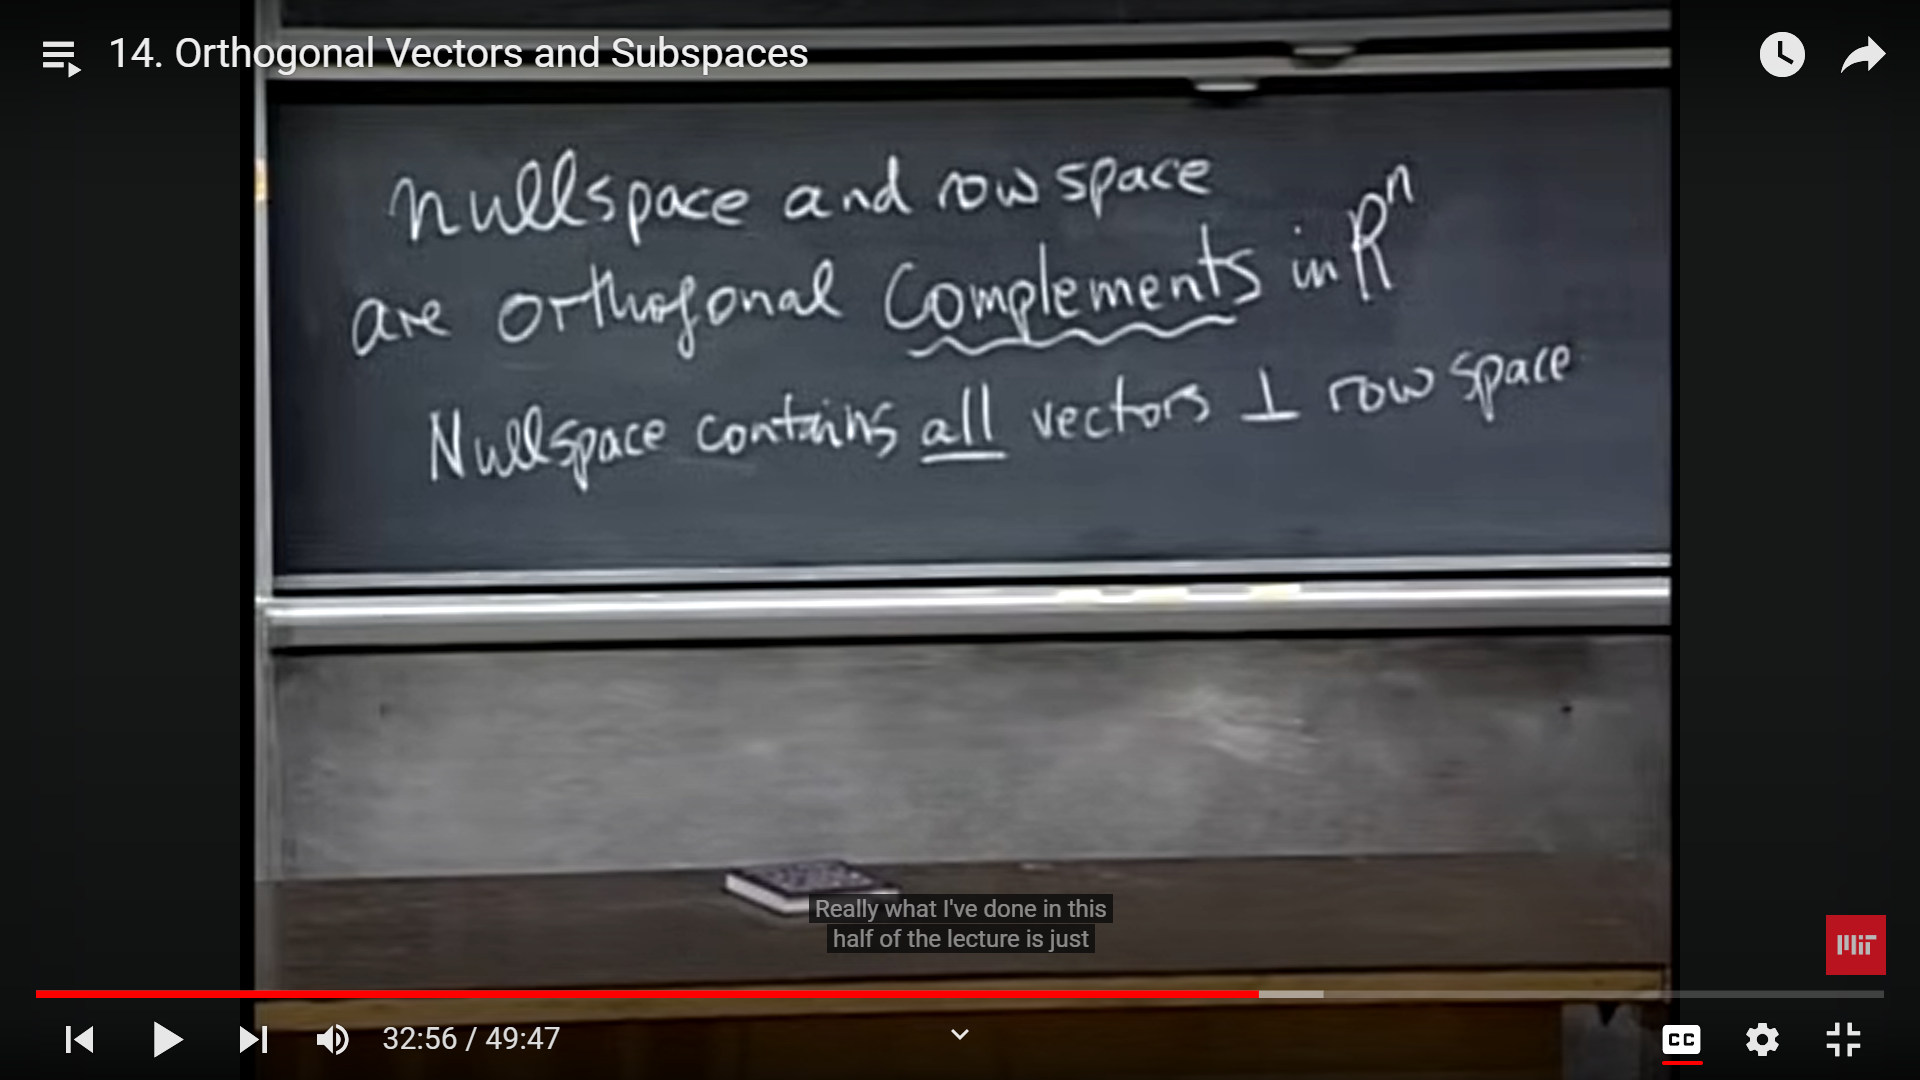 14. Orthogonal Vectors and Subspaces
nullspace and row space
are orthogonal complements in Rⁿ
Nullspace contains all vectors ⊥ row space
Really what I've done in this
half of the lecture is just
MIT
32:56 / 49:47
CC